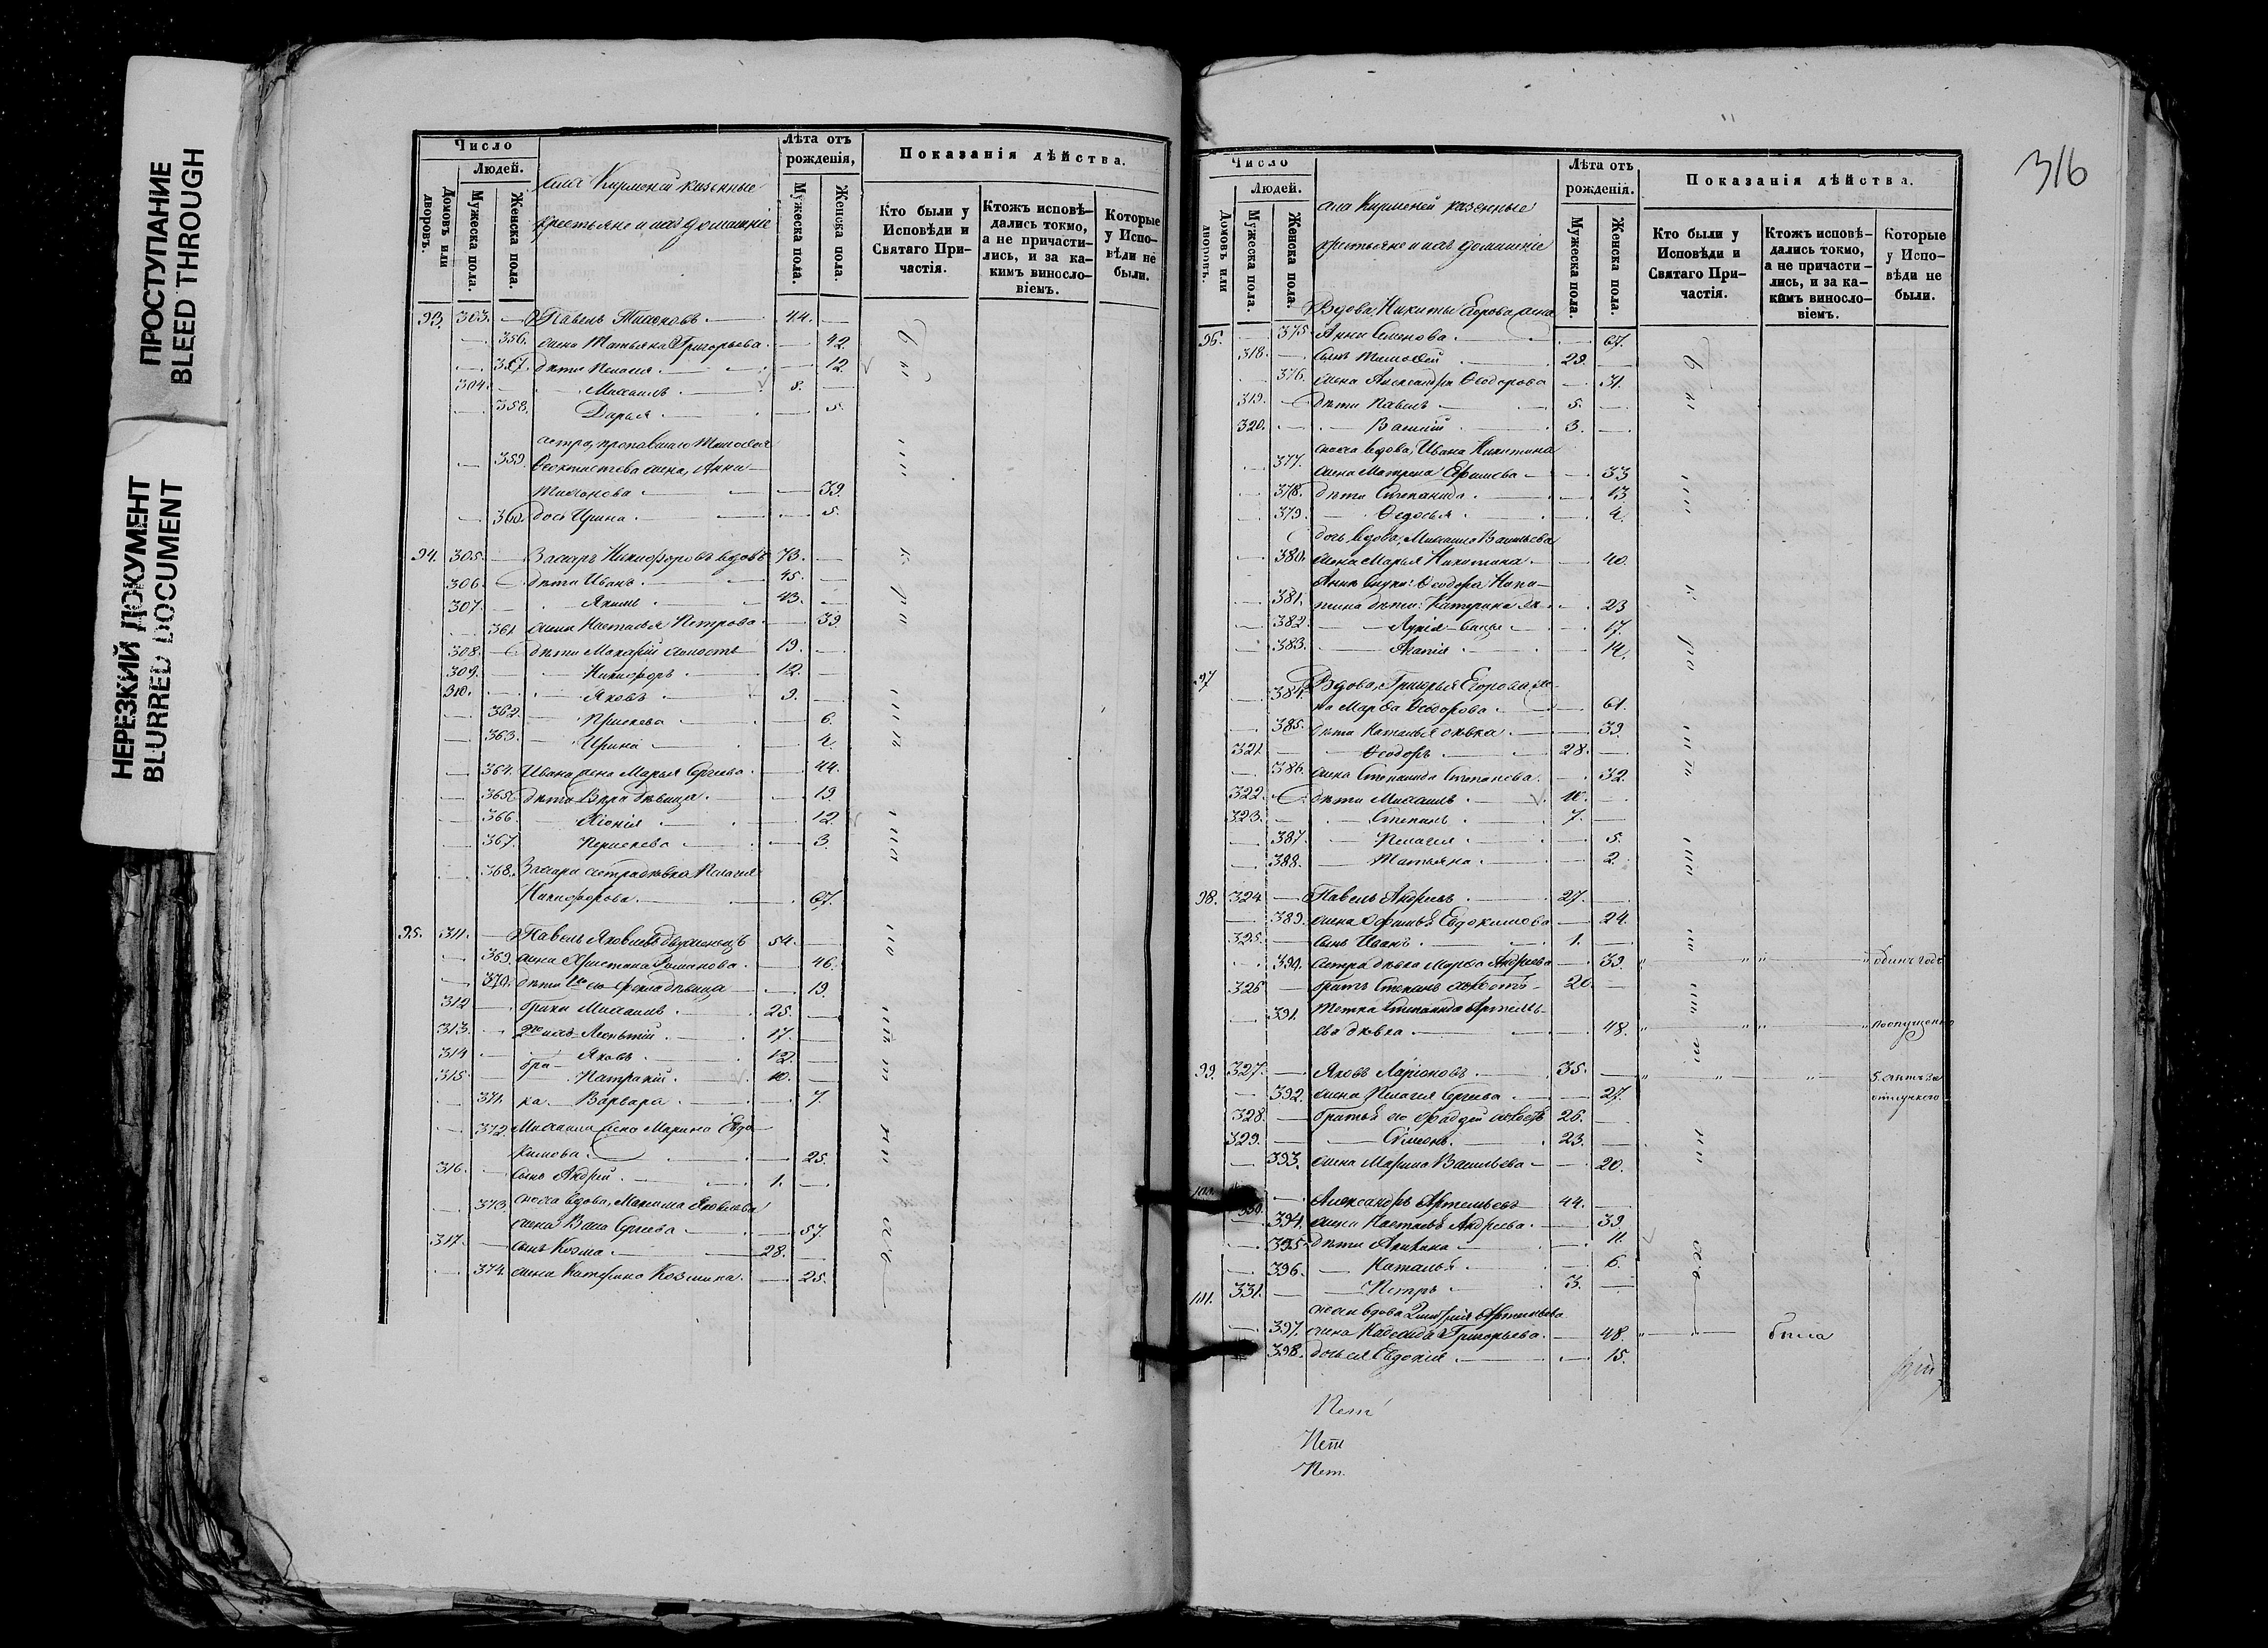 ПРОСТУПАНИЕ
BLEED THROUGH
НЕРЕЗКИЙ ДОКУМЕНТ
BLURRED DOCUMENT
Число
Людей.
Домовъ или дворовъ.
Мужеска пола.
Женска пола.
села Кирменей казенные
крестьяне и ихъ домашніе
Лѣта отъ рожденія,
Мужеска пола.
Женска пола.
Показанія дѣйства.
Кто были у Исповѣди и Святаго Причастія.
Ктожъ исповѣдались токмо, а не причастились, и за какимъ виносло-віемъ.
Которые у Испо-вѣди не были.
93. 303. — Павелъ Тихоновъ 44. —
— 356. жена Татьяна Григорьева — 42.
— 357. дѣти Пелагея — 12.
304. — Михаилъ 8. —
— 358. Дарья — 5.
сестра, пропавшаго Тимофея
— 359. Феоктистова жена, Анна
Тихонова — 39.
— 360. дочь Ирина — 5.
94. 305. — Захаръ Никифоровъ вдовъ 73. —
306. — дѣти Иванъ 45. —
307. — Якимъ 43. —
— 361. жена Настасья Петрова — 39.
308. — дѣти Макарій холостъ 19. —
309. — Никифоръ 12. —
310. — Яковъ 9. —
— 362. Прасковья — 6.
— 363. Ирина — 4.
— 364. Ивана жена Марья Сергеева — 44.
— 365. дѣти Вѣра дѣвица — 19.
— 366. Хіонія — 12.
— 367. — 3.
— 368. Захара сестра дѣвка Пелагея
Никифорова — 67.
95. 311. — Павелъ Яковлевъ двоеженецъ 54. —
— 369. жена Христина Романова — 46.
— 370. дѣти дѣвица — 19.
312. — брака Михаилъ 25. —
313. — Леонтій 17. —
314. — Яковъ 12. —
315. — бра- Патрикій 10. —
— 371. ка — Варвара — 7.
— 372. Михаила жена Марина Евдо-
кимова — 25.
316. — сынъ Андрей 1. —
— 373. сноха вдова, Максима Яковлева
жена Васса Сергеева — 57.
317. — сынъ Козма 28. —
— 374. жена Катерина Козмина — 25.
316
Число
Людей.
Домовъ или дворовъ.
Мужеска пола.
Женска пола.
села Кирменей казенные
крестьяне и ихъ домашніе
Лѣта отъ рожденія.
Мужеска пола.
Женска пола.
Показанія дѣйства.
Кто были у Исповѣди и Святаго При-частія.
Ктожъ исповѣ-дались токмо, а не причасти-лись, и за ка-кимъ виносло-віемъ.
Которые у Испо-вѣди не были.
Вдова, Никиты Егорова жена
96. — 375. Анна Семенова — 67.
318. — сынъ Тимофей 29. —
— 376. жена Александра Феодорова — 31.
319. — дѣти Павелъ 5. —
320. — Василій 3. —
сноха вдова, Ивана Никитина
— 377. жена Матрена Ефимова — 33
— 378. дѣти Степанида — 13
— 379. Федосья — 4.
дочь вдова, Михаила Васильева
— 380. жена Марья Никитина — 40.
Анны внуки: Феодора Ники-
— 381. тина дѣти: Катерина — 23
— 382. Лукія — 17.
— 383. Агапія — 14.
97 — 384. Вдова, Григорья Егорова же-
на Марфа Феодорова — 61.
— 385. дѣти Наталья дѣвка — 39.
321. — Феодоръ 28. —
— 386. жена Степанида Степанова — 32.
322. — дѣти Михаилъ 10. —
323. — Степанъ 7. —
— 387. Пелагея — 5.
— 388. Татьяна — 2.
98. 324. — Павелъ Андреевъ 27. —
— 389. жена Афимья Евдокимова — 24.
325. — сынъ Иванъ 1. —
— 390. сестра дѣвка Марѳа Андреева — 39. одинъ годъ
326. — братъ Степанъ холостъ 20. —
— 391. тетка Степанида Артемь-
ева дѣвка — 48. по опущенію
99. 327. — Яковъ Ларіоновъ 35. — 5. лѣтъ за
— 392. жена Пелагея Сергеева — 27. отлучкою
328. — братья его Фаддей холостъ 26. —
329. — Симеонъ 23. —
— 393. жена Марина Васильева — 20.
100. 330. — Александръ Артемьевъ 44. —
— 394. жена Настасья Андреева — 39.
— 395. дѣти Акилина — 11.
— 396. Наталья — 6.
331. — Петръ 3. —
101. сноха вдова Дмитрія Артемьева
— 397. жена Григорьева — 48. была
— 398. дочь ея Евдокія — 15.